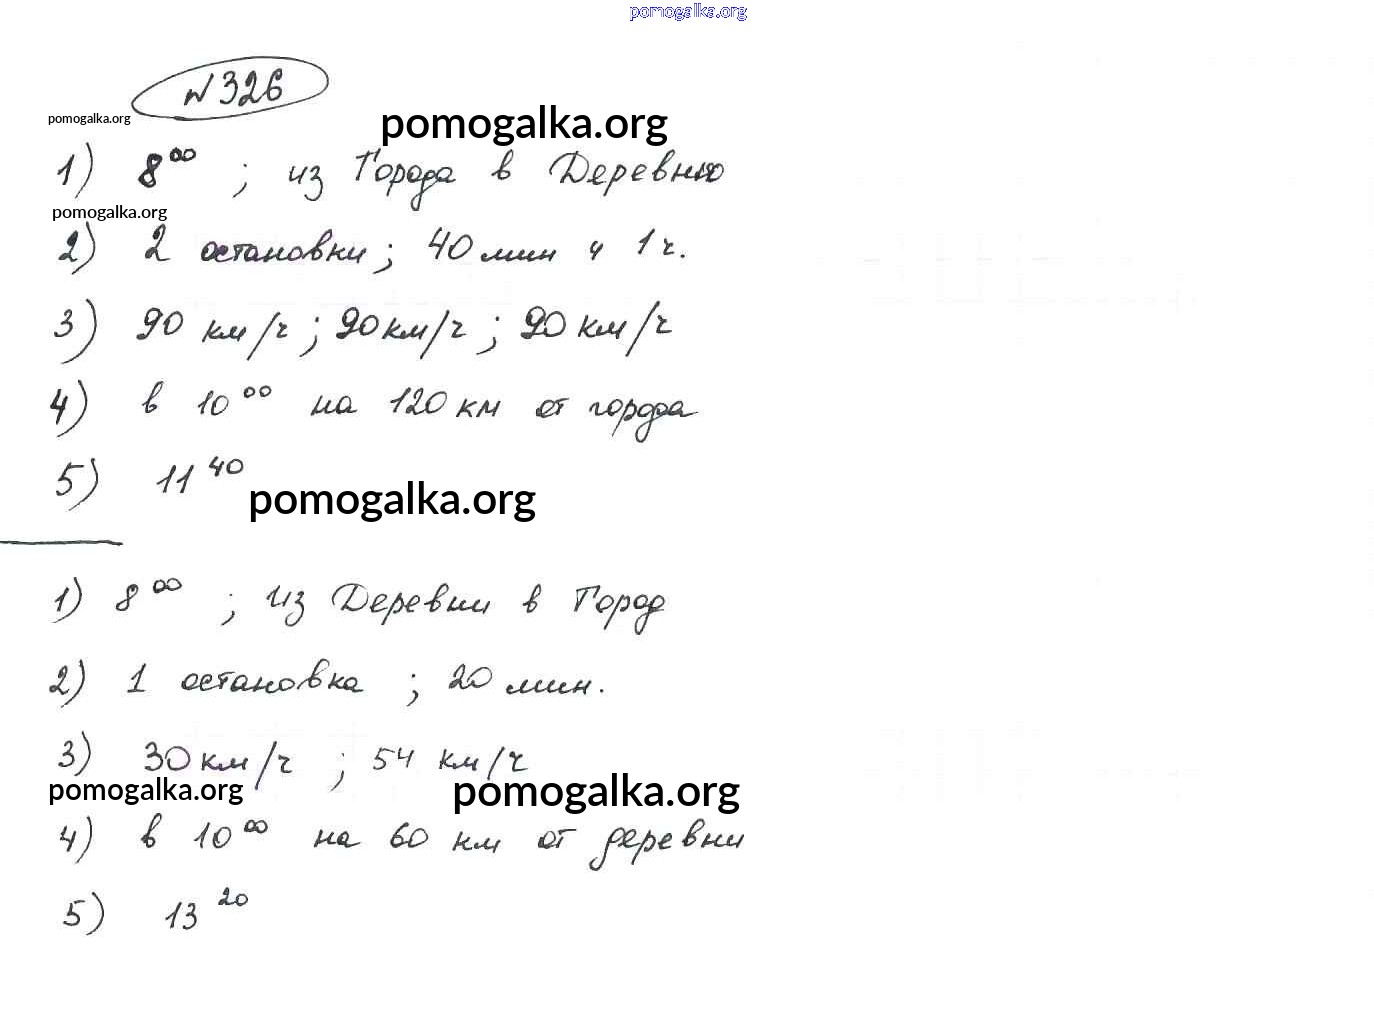 pomogalka.org
№326
pomogalka.org
pomogalka.org
1) 8⁰⁰ ; из Города в Деревню
pomogalka.org
2) 2 остановки; 40 мин и 1 ч.
3) 90 км/ч ; 90 км/ч ; 90 км/ч
4) в 10⁰⁰ на 120 км от города
5) 11⁴⁰
pomogalka.org
1) 8⁰⁰ ; из Деревни в Город
2) 1 остановка ; 20 мин.
3) 30 км/ч ; 54 км/ч
pomogalka.org pomogalka.org
4) в 10⁰⁰ на 60 км от деревни
5) 13²⁰